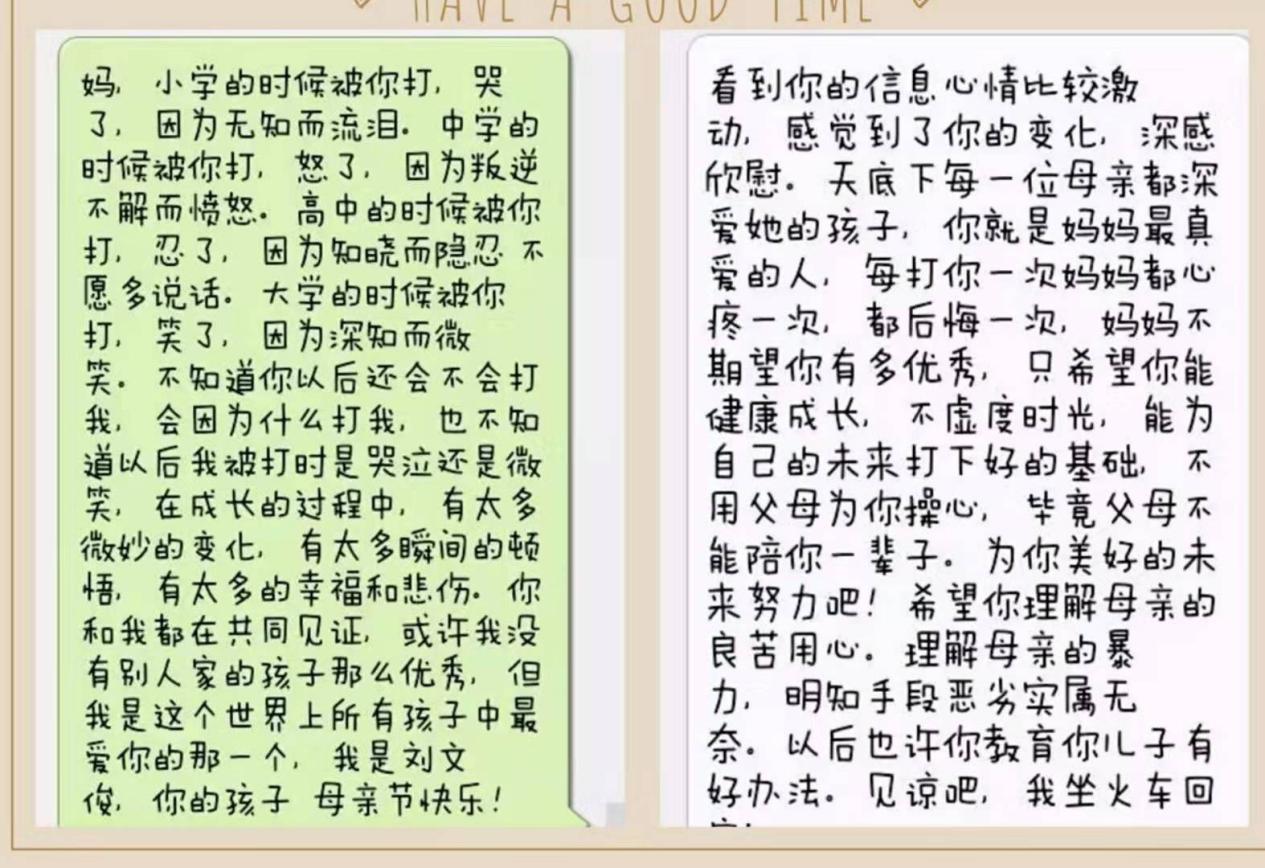 HAVE A GOOD TIME
妈, 小学的时候被你打, 哭
了, 因为无知而流泪。中学的
时候被你打, 怒了, 因为叛逆
不解而愤怒。高中的时候被你
打, 忍了, 因为知晓而隐忍 不
愿多说话。大学的时候被你
打, 笑了, 因为深知而微
笑。不知道你以后还会不会打
我, 会因为什么打我, 也不知
道以后我被打时是哭泣还是微
笑, 在成长的过程中, 有太多
微妙的变化, 有太多瞬间的顿
悟, 有太多的幸福和悲伤。你
和我都在共同见证, 或许我没
有别人家的孩子那么优秀, 但
我是这个世界上所有孩子中最
爱你的那一个, 我是刘文
俊, 你的孩子 母亲节快乐!
看到你的信息心情比较激
动, 感觉到了你的变化, 深感
欣慰。天底下每一位母亲都深
爱她的孩子, 你就是妈妈最真
爱的人, 每打你一次妈妈都心
疼一次, 都后悔一次, 妈妈不
期望你有多优秀, 只希望你能
健康成长, 不虚度时光, 能为
自己的未来打下好的基础, 不
用父母为你操心, 毕竟父母不
能陪你一辈子。为你美好的未
来努力吧! 希望你理解母亲的
良苦用心。理解母亲的暴
力, 明知手段恶劣实属无
奈。以后也许你教育你儿子有
好办法。见谅吧, 我坐火车回